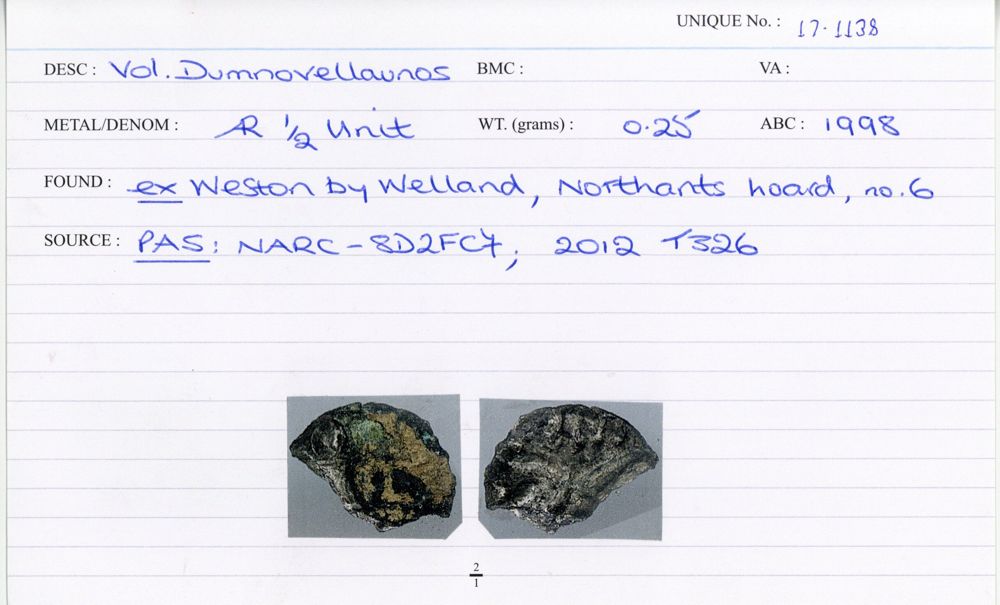 UNIQUE No. : 17-1138
DESC : Vol. Dumnovellaunos BMC : VA :
METAL/DENOM : AR ½ Unit WT. (grams) : 0.25 ABC : 1998
FOUND : ex Weston by Welland, Northants hoard, no. 6
SOURCE : PAS: NARC-8D2FC7; 2012 T326
2
1